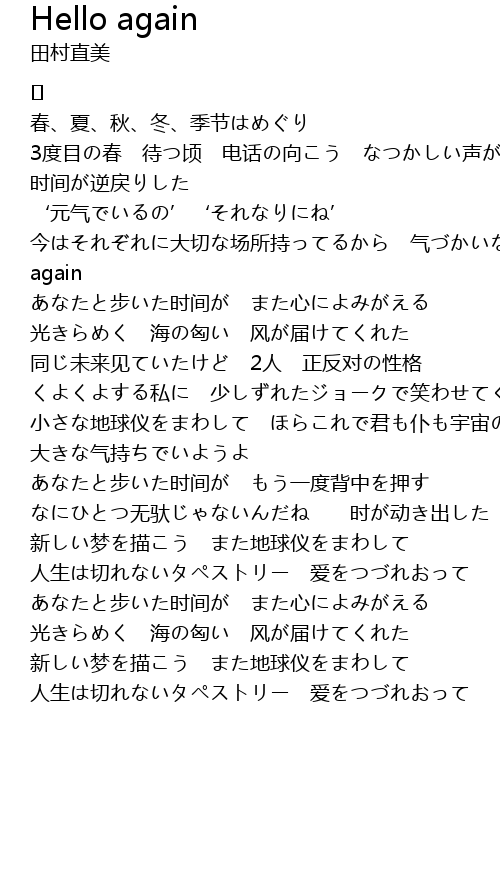 Hello again
田村直美
[]
春、夏、秋、冬、季节はめぐり
3度目の春　待つ顷　电话の向こう　なつかしい声が
时间が逆戻りした
‘元气でいるの’　‘それなりにね’
今はそれぞれに大切な场所持ってるから　气づかいな
again
あなたと步いた时间が　また心によみがえる
光きらめく　海の匈い　风が届けてくれた
同じ未来见ていたけど　2人　正反对の性格
くよくよする私に　少しずれたジョークで笑わせてく
小さな地球仪をまわして　ほらこれで君も仆も宇宙の
大きな气持ちでいようよ
あなたと步いた时间が　もう一度背中を押す
なにひとつ无驮じゃないんだね　　时が动き出した
新しい梦を描こう　また地球仪をまわして
人生は切れないタペストリー　爱をつづれおって
あなたと步いた时间が　また心によみがえる
光きらめく　海の匈い　风が届けてくれた
新しい梦を描こう　また地球仪をまわして
人生は切れないタペストリー　爱をつづれおって